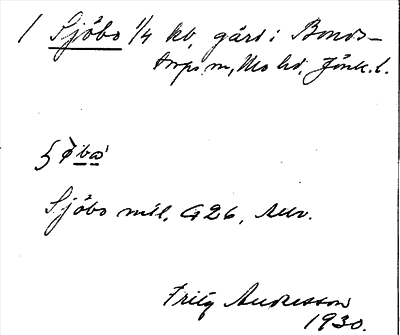 1 Sjöbo 1/4 kb, gård i Bonds-
torps sn, Mo hd, Jönk. l.
Sjöbo mtl, G26, Adr.
Fritz Andersson
1930.